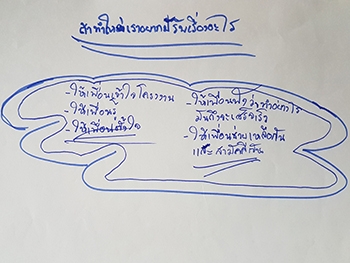 ถ้าทำให้เราอยากปรับเรื่องอะไร
-ให้เพื่อนเข้าใจโครงงาน
-ให้เพื่อนรู้
-ให้เพื่อนตั้งใจ
-ให้เพื่อน ว่าทำอะไร
มันถึงจะเสร็จเร็ว
-ให้เพื่อนช่วยเหลือกัน
และสามัคคีกัน